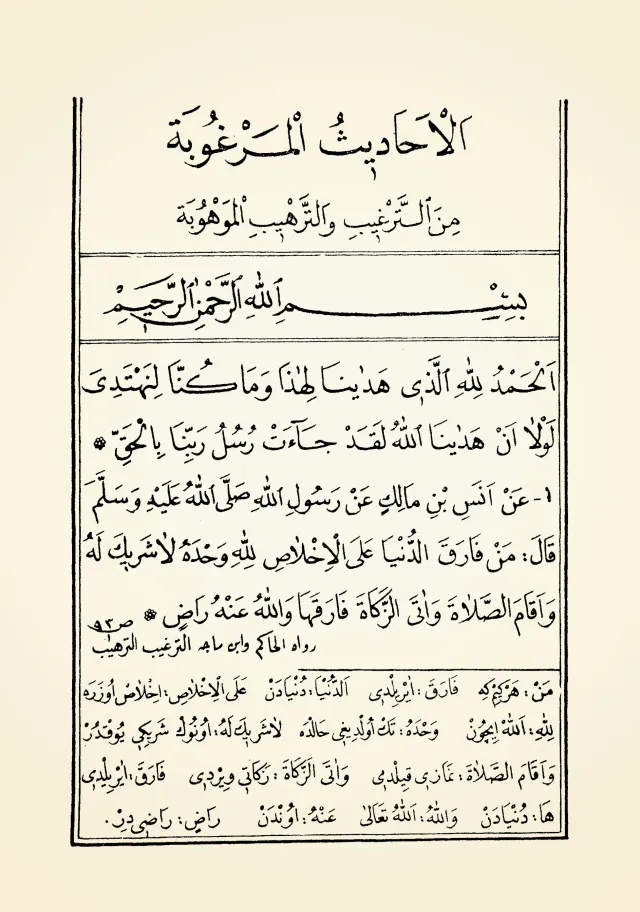 اَلْاَحَادِيثُ الْمَرْغُوبَة
مِنَ التَّرْغِيبِ وَالتَّرْهِيبِ الْمَوْهُوبَة
بِسْمِ اللهِ الرَّحْمٰنِ الرَّحِيمِ
اَلْحَمْدُ لِلّٰهِ الَّذِى هَدٰينَا لِهٰذَا وَمَا كُنَّا لِنَهْتَدِىَ
لَوْلَا اَنْ هَدٰينَا اللهُ لَقَدْ جَاۤءَتْ رُسُلُ رَبِّنَا بِالْحَقِّ *
١- عَنْ اَنَسِ بْنِ مَالِكٍ عَنْ رَسُولِ اللهِ صَلَّى اللهُ عَلَيْهِ وَسَلَّمَ
قَالَ: مَنْ فَارَقَ الدُّنْيَا عَلَى الْاِخْلَاصِ لِلّٰهِ وَحْدَهُ لَا شَرِيكَ لَهُ
وَاَقَامَ الصَّلَاةَ وَاٰتَى الزَّكَاةَ فَارَقَهَا وَاللهُ عَنْهُ رَاضٍ * ص٩٣
رواه الحاكم وابن ماجه الترغيب الترهيب
مَنْ: هَرْكِيمْ كِه فَارَقَ: اٰيْرِيلْدِى اَلدُّنْيَا: دُنْيَادَنْ عَلَى الْاِخْلَاصِ: اِخْلَاصْ اُوزَرَه
لِلّٰهِ: اَللهْ اِيچُونْ وَحْدَهُ: تَكْ اُولْدِيغِى حَالْدَه لَا شَرِيكَ لَهُ: اُونُوكْ شَرِيكِى يُوقْدُرْ
وَاَقَامَ الصَّلَاةَ: نَمَازِى قِيلْدِى وَاٰتَى الزَّكَاةَ: زَكَاتِى وِيرْدِى فَارَقَ: اٰيْرِيلْدِى
هَا: دُنْيَادَنْ وَاللهُ: اَللهُ تَعَالٰى عَنْهُ: اُونْدَنْ رَاضٍ: رَاضِى دِرْ.